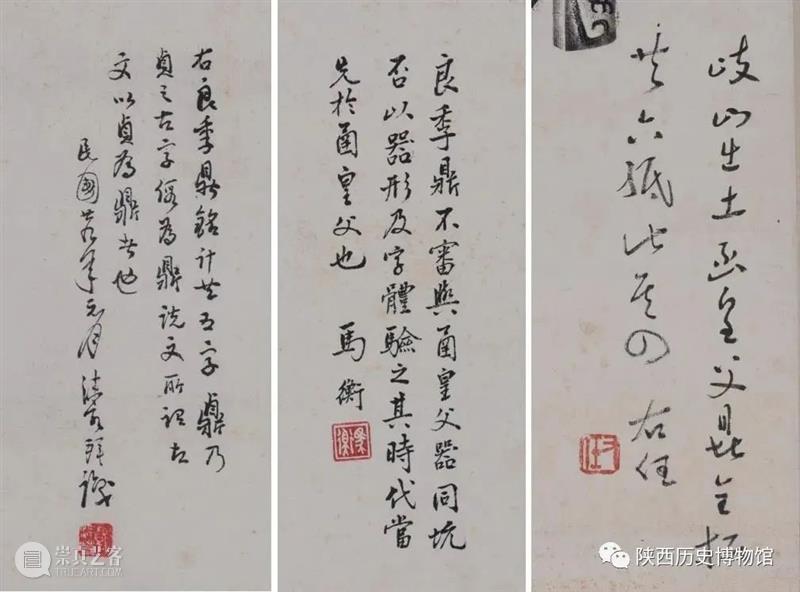 右良季鼎銘計廿五字鼎乃
貞之古字假為鼎說文所謂古
文以貞為鼎者也
民國年元月
良季鼎不審與圅皇父器同坑
否以器形及字體驗之其時代當
先於圅皇父也 馬衡
岐山出土函皇父鼎全拓
共六紙此其四 右任
崇真艺客
TRUEART.COM
陕西历史博物馆